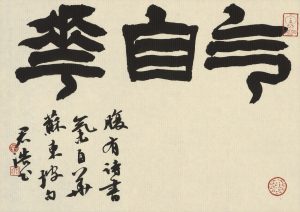 气自華
腹有詩書
氣自華
蘇東坡句